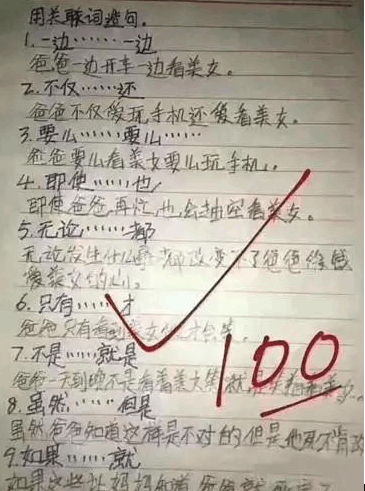 用关联词造句。
1.一边……一边
爸爸一边开车一边看美女。
2.不仅……还
爸爸不仅爱玩手机还爱看美女。
3.要么……要么……
爸爸要么看美女要么玩手机。
4.即使……也
即使爸爸再忙,也会抽空看美女。
5.无论……都
无论发生什么事都改变不了爸爸
爱美女的心。
6.只有……才
爸爸只有看到美女
7.不是……就是
爸爸一天到晚不是看着美女笑就是
8.虽然……但是
虽然爸爸知道这样是不对的但是他死不肯改
9.如果……就
如果这些让妈妈知道爸爸就死定了
100